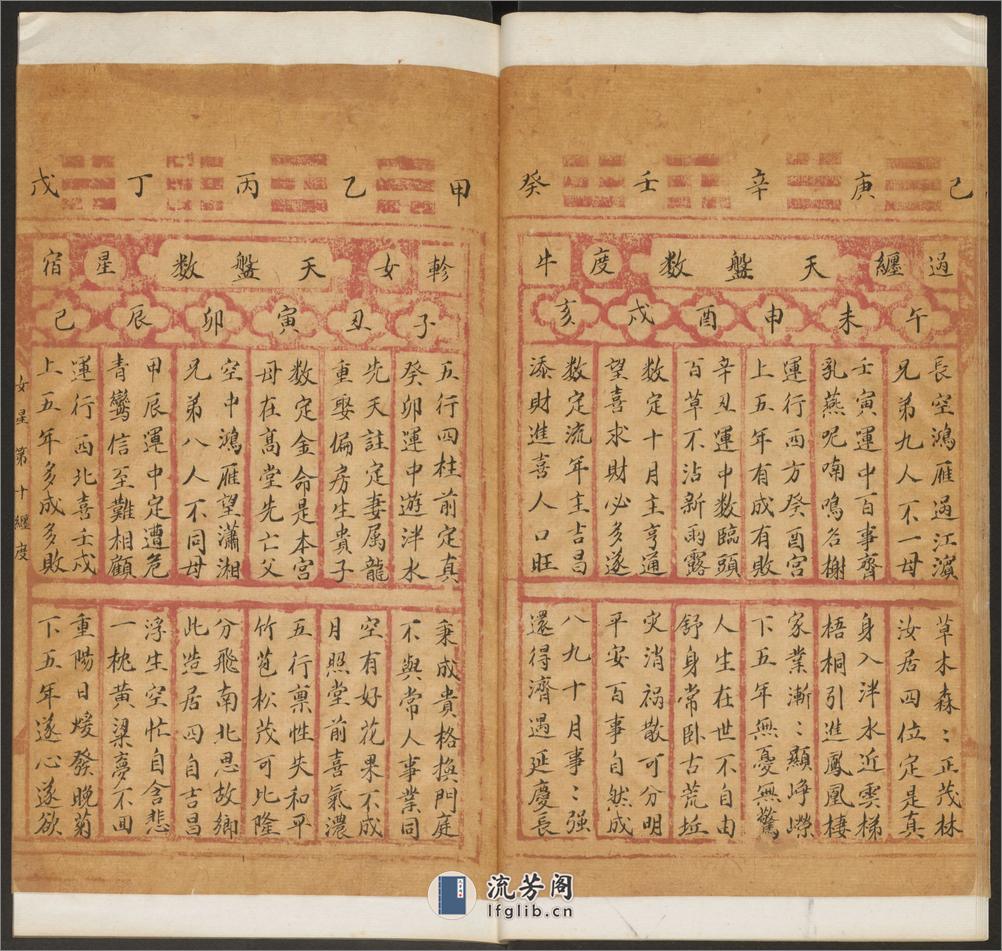 己 庚 辛 壬 癸
過纏 天盤数 度牛
午 未 申 酉 戌 亥
長空鴻雁過江濱
兄弟九人不一母
壬寅運中百事齊
乳燕呢喃鳴名榭
運行西方癸酉宮
上五年有成有敗
辛丑運中数臨頭
百草不沾新雨露
数定十月主亨通
望喜求財必多遂
数定流年主吉昌
添財進喜人口旺
草木森〻正茂林
汝居四位定是真
身入泮水近雲梯
梧桐引進鳳凰棲
家業漸〻顯崢嶸
下五年無憂無驚
人生在世不自由
舒身常卧古荒坵
災消禍散可分明
平安百事自然成
八九十月事〻强
還得濟遇延慶長
甲 乙 丙 丁 戊
軫女 天盤数 星宿
子 丑 寅 卯 辰 巳
五行四柱前定真
癸卯運中遊泮水
先天註定妻属龍
重娶偏房生貴子
数定金命是本宮
母在髙堂先亡父
空中鴻雁望瀟湘
兄弟八人不同母
甲辰運中定遭危
青鸞信至難相顧
運行西北喜壬戌
上五年多成多敗
秉成貴格換門庭
不與常人事業同
空有好花果不成
月照堂前喜氣濃
五行稟性失和平
竹苞松茂可比隆
分飛南北思故鄉
此造居四自吉昌
浮生空忙自含悲
一枕黄梁夢不回
重陽日煖發晚菊
下五年遂心遂欲
女星第十纏度
流芳阁
lfglib.cn